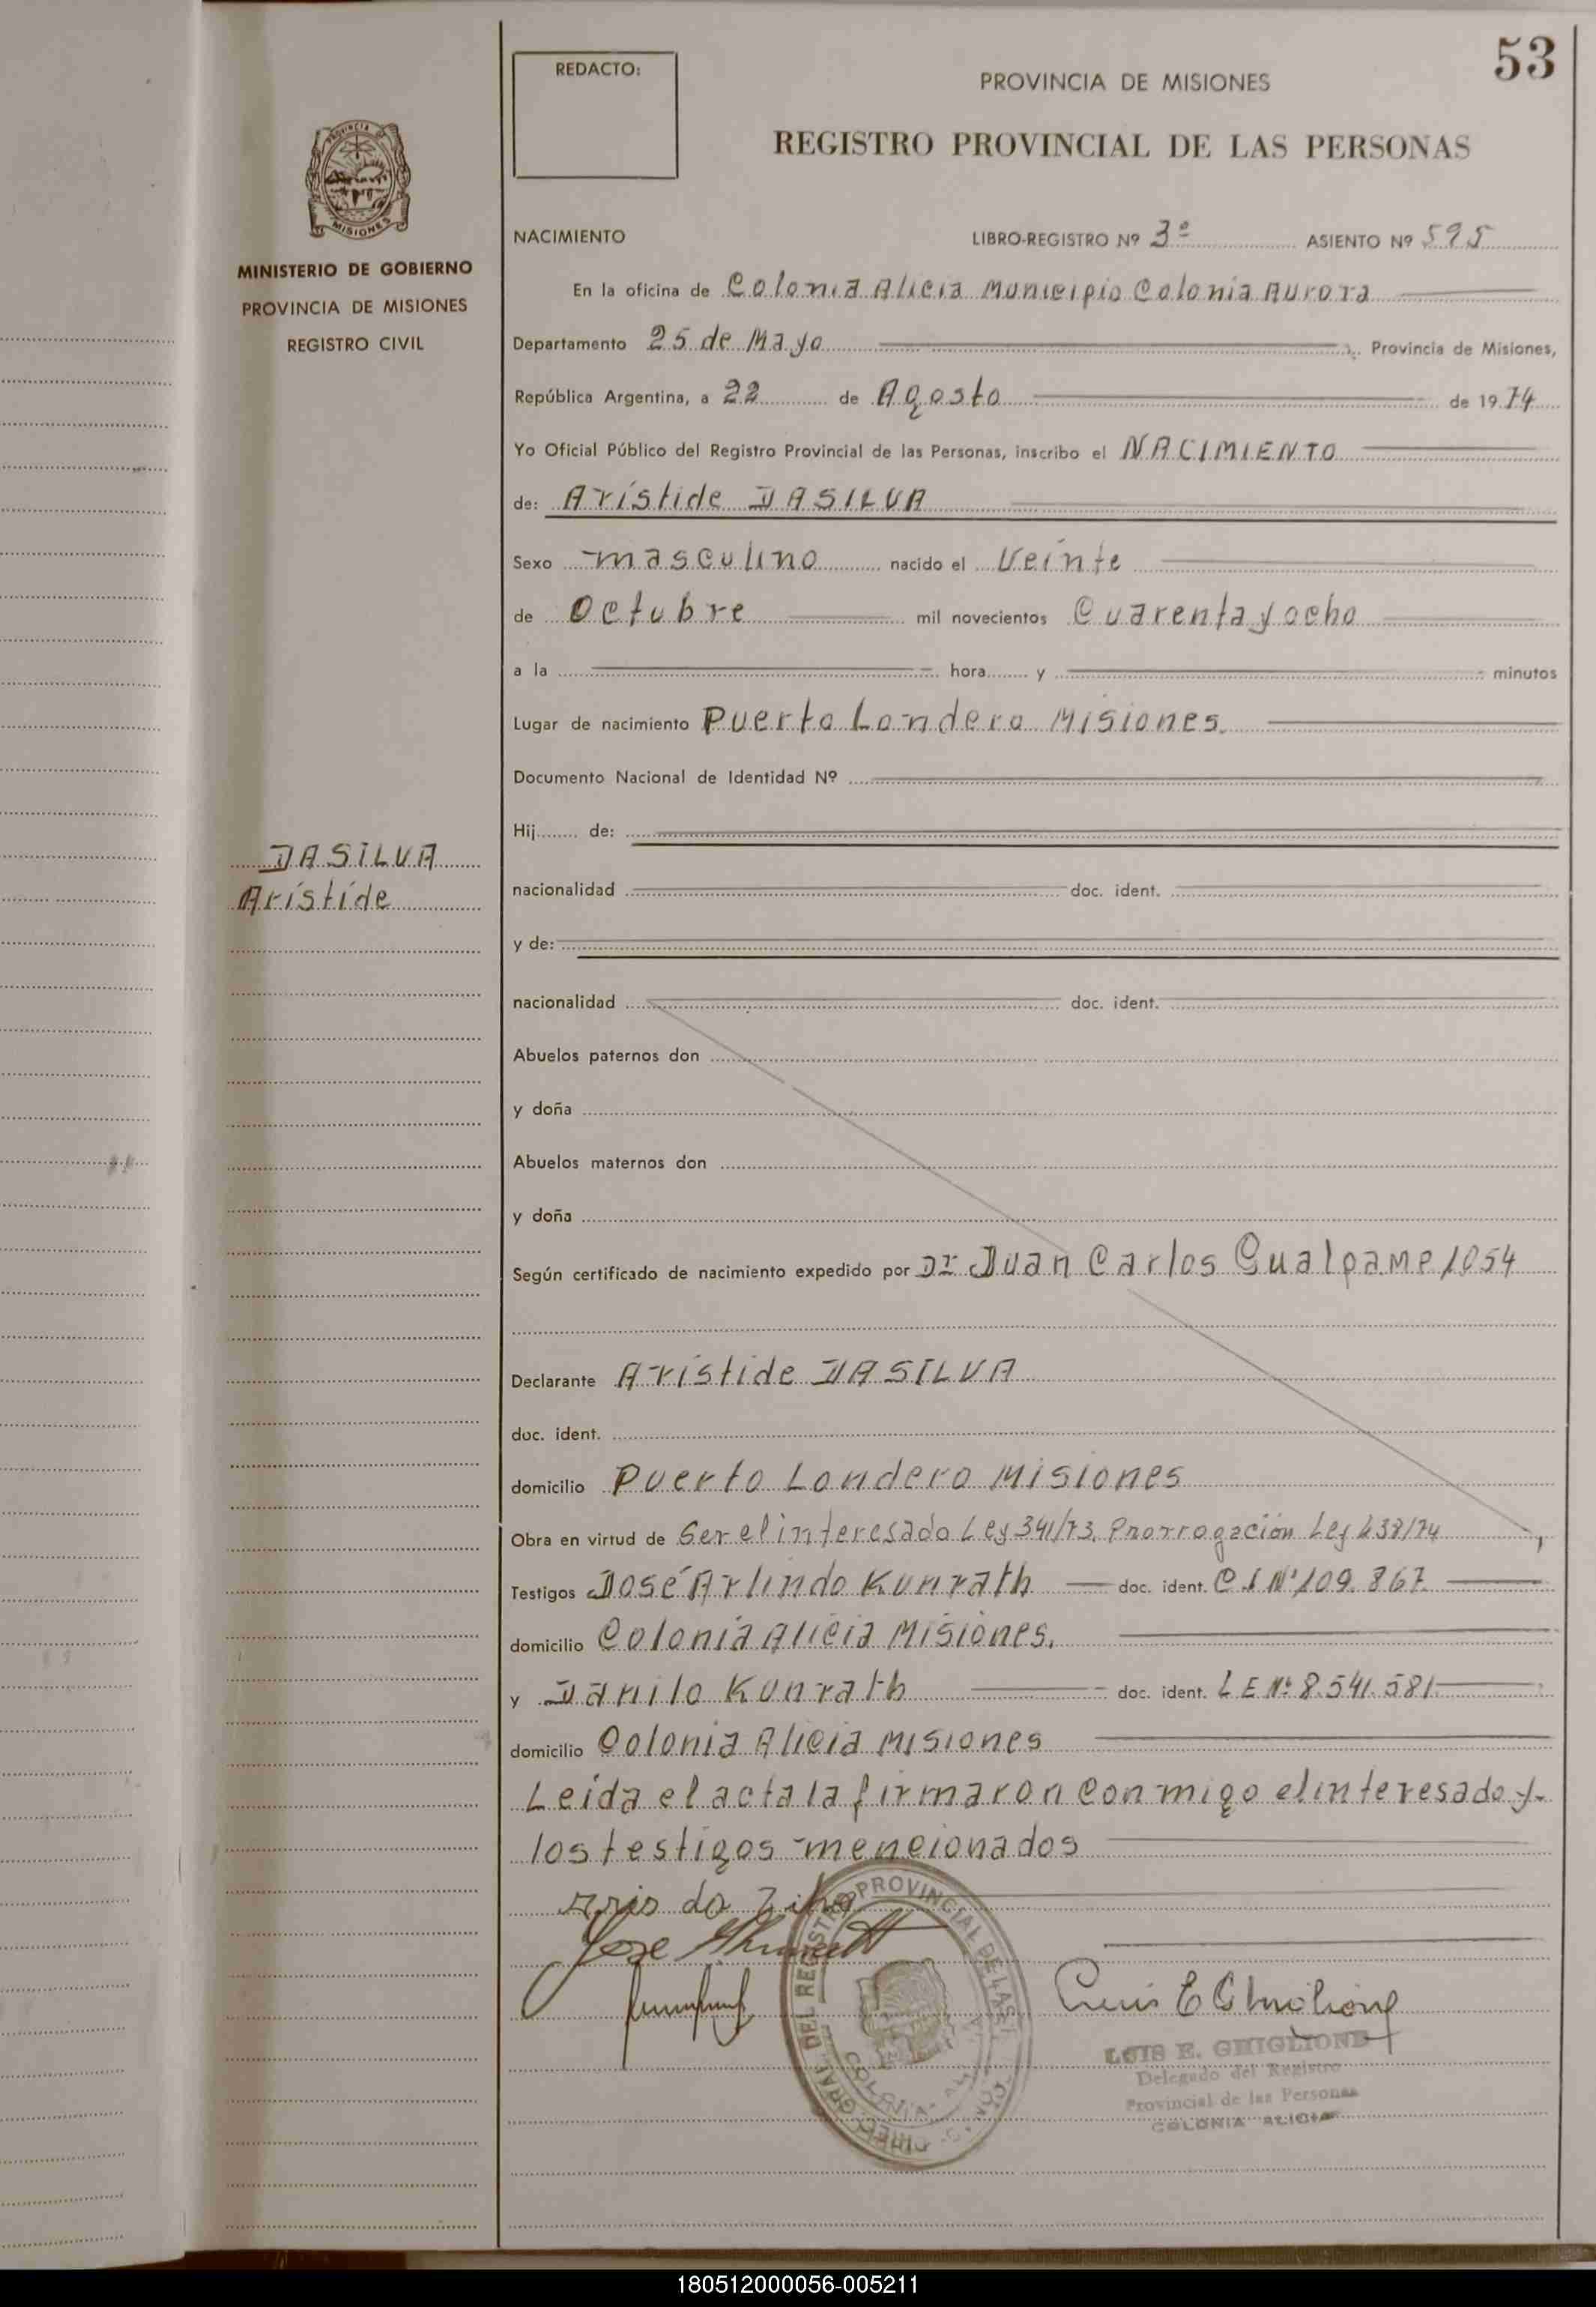 53
REDACTO:
PROVINCIA DE MISIONES
REGISTRO PROVINCIAL DE LAS PERSONAS
MISIONES
MINISTERIO DE GOBIERNO
PROVINCIA DE MISIONES
REGISTRO CIVIL
DASILVA
Arístide
NACIMIENTO LIBRO-REGISTRO Nº 3º ASIENTO Nº 595
En la oficina de Colonia Alicia Municipio Colonia Aurora
Departamento 25 de Mayo Provincia de Misiones,
República Argentina, a 22 de Agosto de 1974
Yo Oficial Público del Registro Provincial de las Personas, inscribo el NACIMIENTO
de: Arístide DASILVA
Sexo masculino nacido el Veinte
de Octubre mil novecientos Cuarenta y ocho
a la hora y minutos
Lugar de nacimiento Puerto Londero Misiones.
Documento Nacional de Identidad Nº
Hij de:
nacionalidad doc. ident.
y de:
nacionalidad doc. ident.
Abuelos paternos don
y doña
Abuelos maternos don
y doña
Según certificado de nacimiento expedido por Dr Juan Carlos Gualpame 1054
Declarante Arístide DASILVA
doc. ident.
domicilio Puerto Londero Misiones
Obra en virtud de Ser el interesado Ley 341/73. Prorrogación Ley 438/74
Testigos José Arlindo Kunrath doc. ident. C I Nº 109.867
domicilio Colonia Alicia Misiones.
y Danilo Kunrath doc. ident. L E Nº 8.541.581
domicilio Colonia Alicia Misiones
Leída el acta la firmaron conmigo el interesado y
los testigos mencionados
Jose
Luis E Ghiglione
LUIS E. GHIGLIONE
Delegado del Registro
Provincial de las Personas
COLONIA ALICIA
180512000056-005211